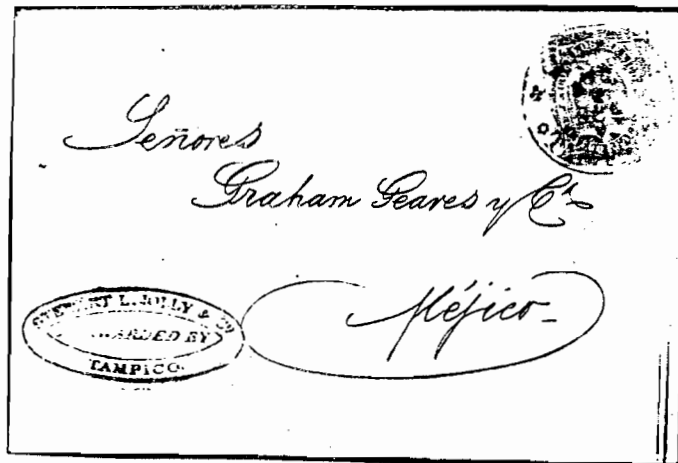 Señores
Graham Geaves y Cª
Méjico
STEWART L. JOLLY & Co
FORWARDED BY
TAMPICO.